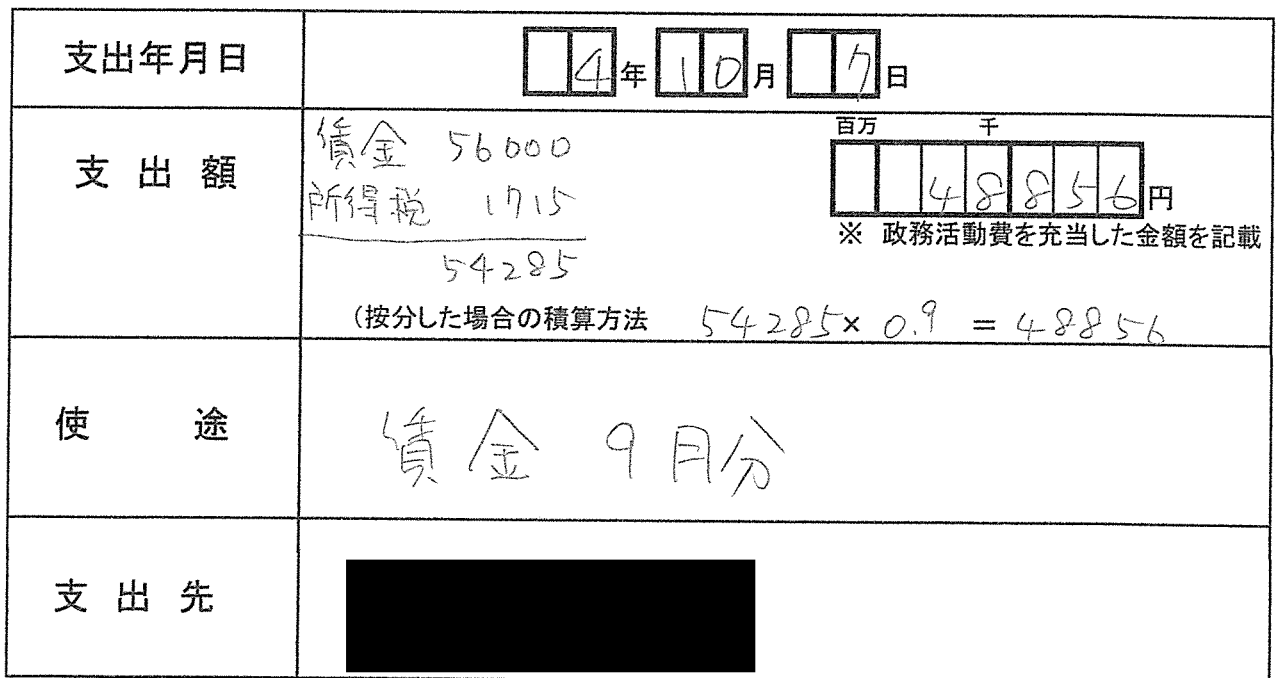 支出年月日 4年10月7日
支出額
賃金 56000
所得税 1715
54285
百万 千
48856円
※ 政務活動費を充当した金額を記載
(按分した場合の積算方法 54285× 0.9 = 48856
使途 賃金 9月分
支出先